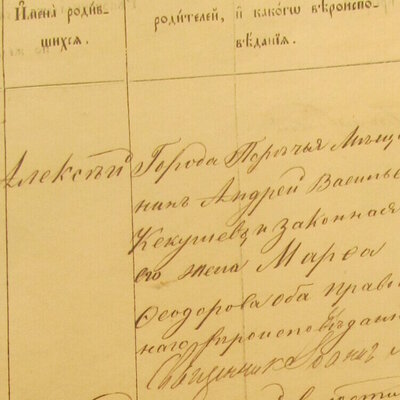 Имена родив-
шихся.
родителей, и какогѡ вѣроиспо-
вѣданїя.
Алексѣй
Города Поречья Мѣща
нинъ Андрей Василье
Кекушевъ и законная
его жена Марѳа
Ѳеодорова оба право
наго вѣроисповѣдан
Священникъ Іоаннъ